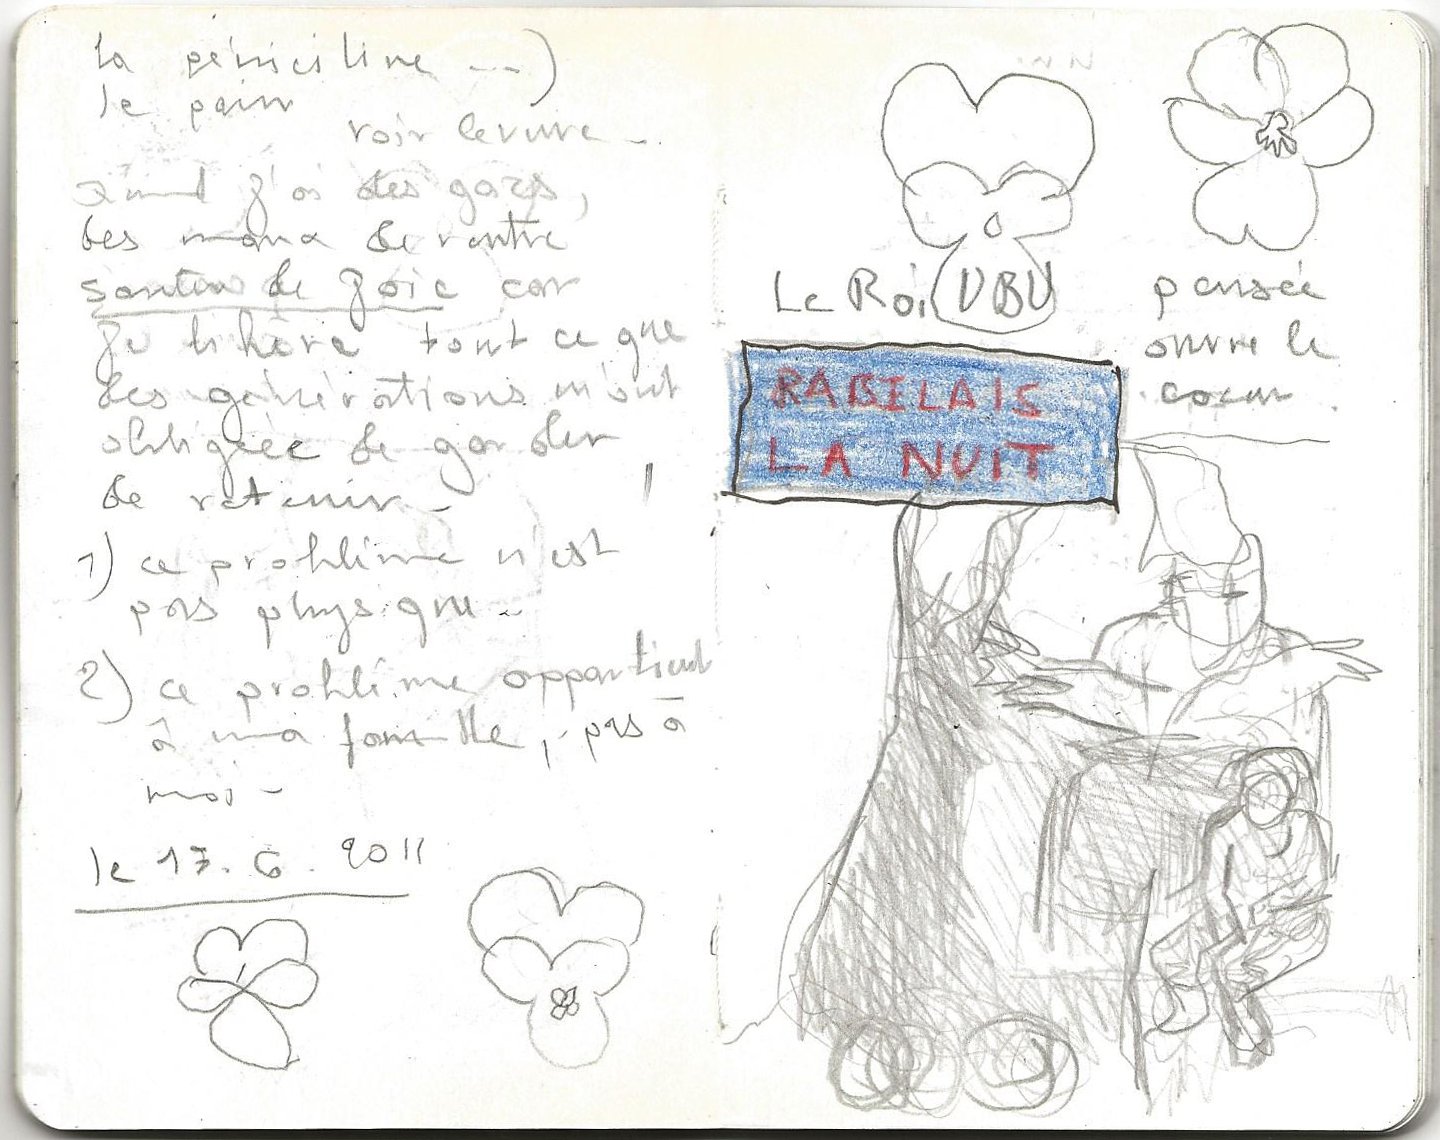 la péniciline ---)
le pain
voir levure -
quand j'ai des gazs,
des maux de ventre
sauter de joie car
je libère tout ce que
des générations m'ont
obligée de garder
de retenir - !
1) ce problème n'est
pas physique -
2) ce problème appartient
à ma famille, pas à
moi -
le 17.6.2011
Le Roi UBU
pensée
ouvre le
coeur.
RABELAIS
LA NUIT